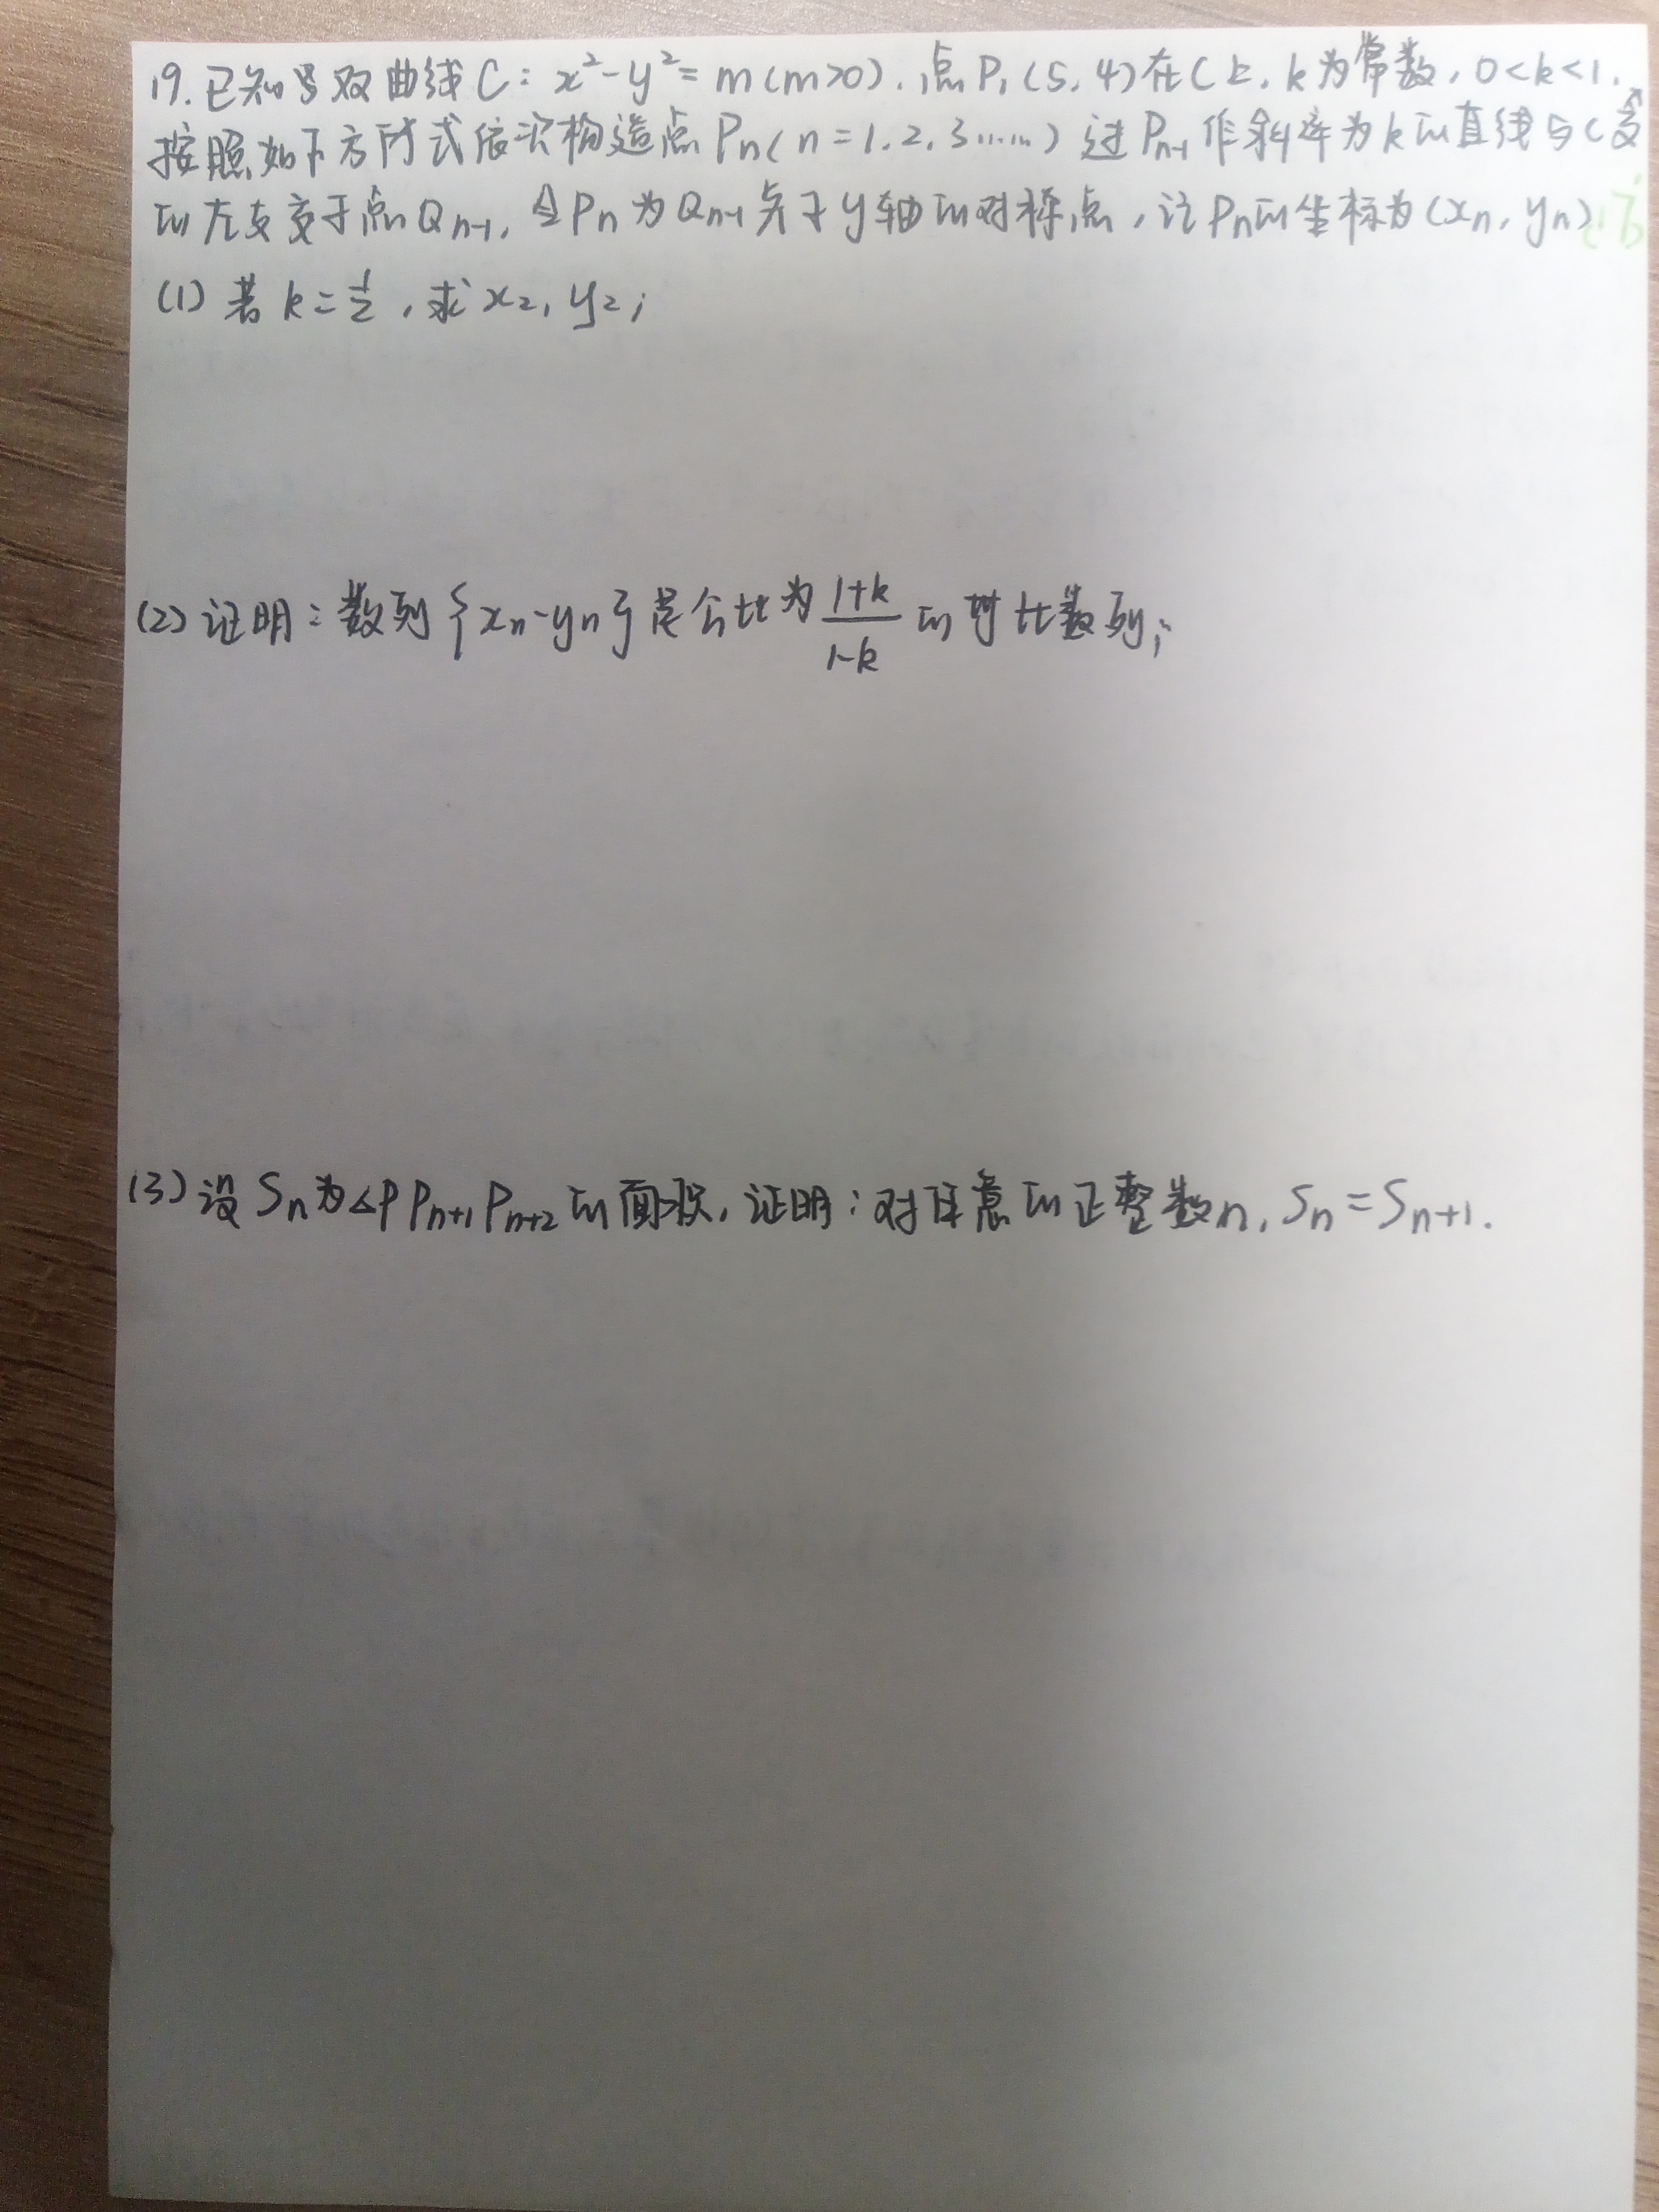 19. 已知双曲线C: x²-y²=m(m>0). 点P₁(5,4)在C上, k为常数, 0<k<1.
按照如下方式依次构造点Pn(n=1.2.3……)过Pn-1作斜率为k的直线与C
的左支交于点Qn-1, 令Pn为Qn-1关于y轴的对称点, 记Pn的坐标为(xn, yn)
(1) 若k=1/2, 求x₂, y₂;
(2) 证明: 数列{xn-yn}是公比为(1+k)/(1-k)的等比数列;
(3) 设Sn为△P Pn+1 Pn+2的面积, 证明: 对任意的正整数n, Sn=Sn+1.